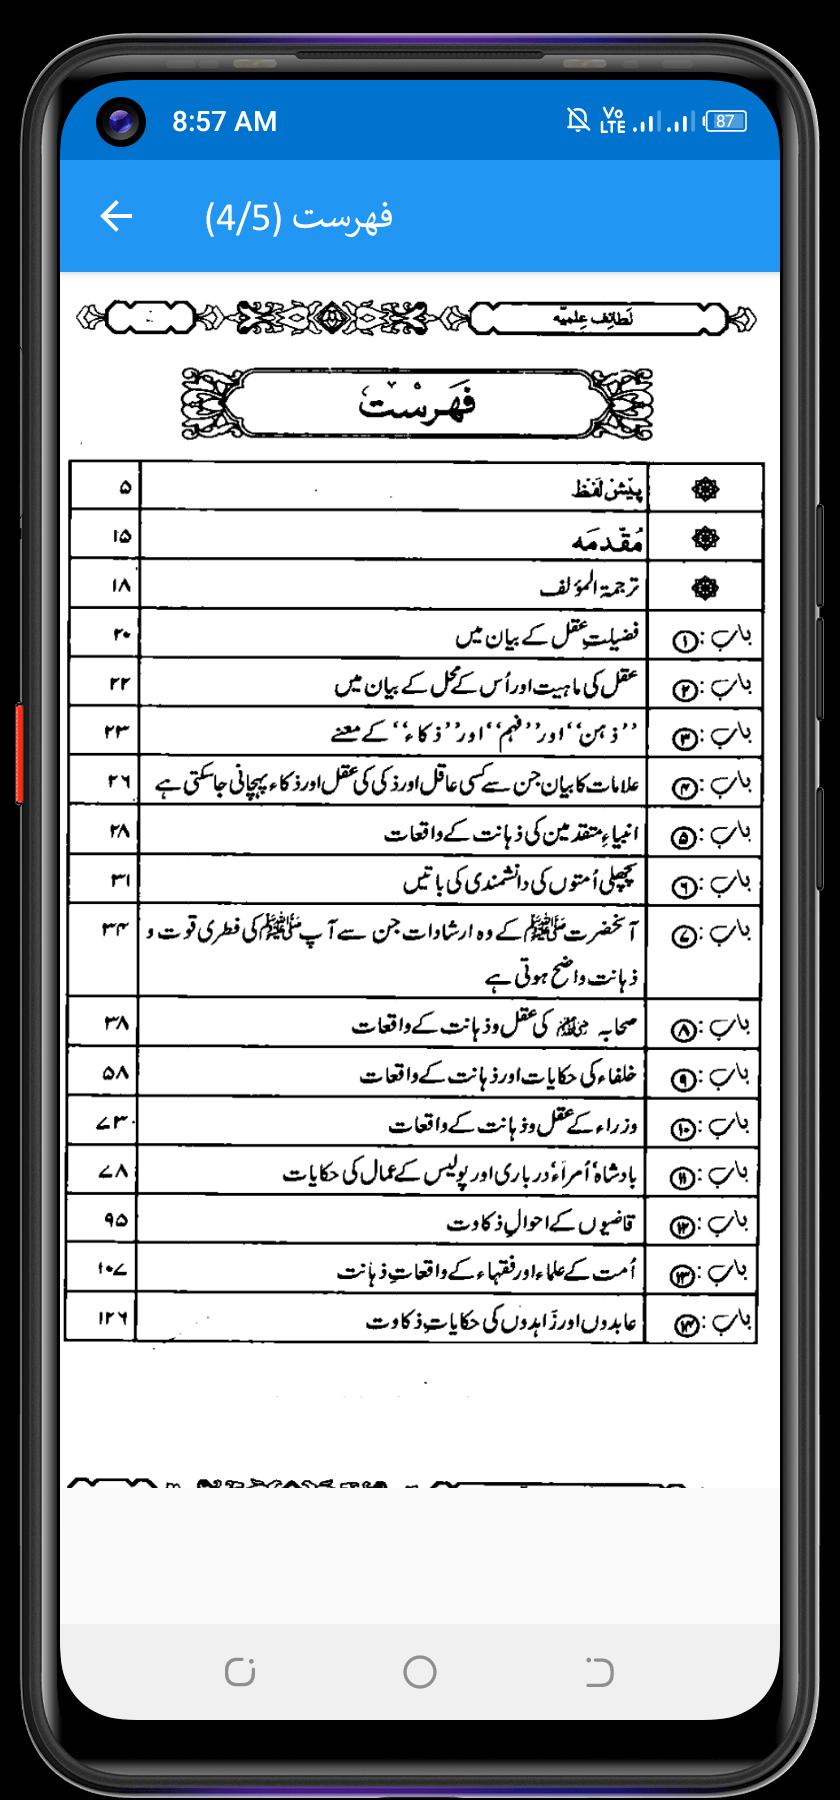 8:57 AM
Vo LTE
87
فہرست (4/5)
لطائف علمیہ
فہرست
پیش لفظ ۵
مقدمہ ۱۵
ترجمۃ المؤلف ۱۸
باب : ۱ فضیلتِ عقل کے بیان میں ۲۰
باب : ۲ عقل کی ماہیت اور اُس کے محل کے بیان میں ۲۲
باب : ۳ ’’ذہن‘‘ اور ’’فہم‘‘ اور ’’ذکاء‘‘ کے معنے ۲۳
باب : ۴ علامات کا بیان جن سے کسی عاقل اور ذکی کی عقل اور ذکاء پہچانی جاسکتی ہے ۲۶
باب : ۵ انبیاءِ متقدمین کی ذہانت کے واقعات ۲۸
باب : ۶ پچھلی اُمتوں کی دانشمندی کی باتیں ۳۱
باب : ۷ آنحضرت ﷺ کے وہ ارشادات جن سے آپ ﷺ کی فطری قوت و ۳۴
ذہانت واضح ہوتی ہے
باب : ۸ صحابہ کی عقل و ذہانت کے واقعات ۳۸
باب : ۹ خلفاء کی حکایات اور ذہانت کے واقعات ۵۸
باب : ۱۰ وزراء کے عقل و ذہانت کے واقعات ۷۳
باب : ۱۱ بادشاہ‘ اُمراء‘ درباری اور پولیس کے عمال کی حکایات ۷۸
باب : ۱۲ قاضیوں کے احوالِ ذکاوت ۹۵
باب : ۱۳ اُمت کے علماء اور فقہاء کے واقعاتِ ذہانت ۱۰۷
باب : ۱۴ عابدوں اور زاہدوں کی حکایاتِ ذکاوت ۱۲۶